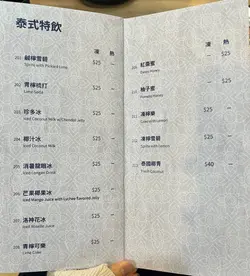 泰式特飲
凍 熱
201. 鹹檸雪碧 $25 —
Sprite with Pickled Lime
202. 青檸梳打 $25 —
Lime Soda
203. 珍多冰 $25 —
Iced Coconut Milk w/Chendol Jelly
204. 椰汁冰 $25 —
Iced Coconut Milk
205. 消暑龍眼冰 $25 —
Iced Longan Drink
206. 芒果椰果冰 $25 —
Iced Mango Juice with Lychee flavored Jelly
207. 洛神花冰 $25 —
Iced Roselle Juice
208. 青檸可樂 $25 —
Lime Coke
凍 熱
209. 紅棗蜜 $25
Honey
210. 柚子蜜 $25
Pomelo Honey
211. 凍檸樂 $25 —
212. 凍檸雪碧 $25 —
Sprite with Lemon
213. 泰國椰青 $40 —
Fresh Coconut